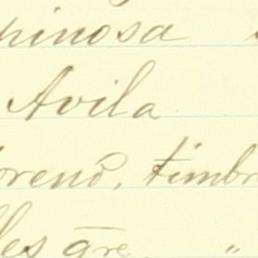 pinosa
Avila
oreno, timbr
les are "